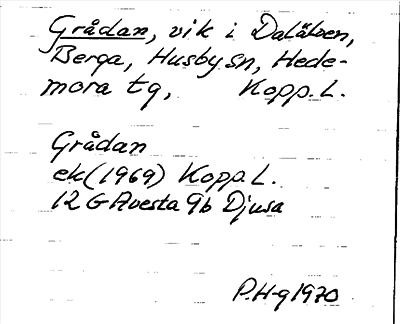 Grådan, vik i Dalälven,
Berga, Husby sn, Hede-
mora tg, Kopp. L.
Grådan
ek (1969) Kopp. L.
12 G Avesta 9b Djusa
P.H-g 1970